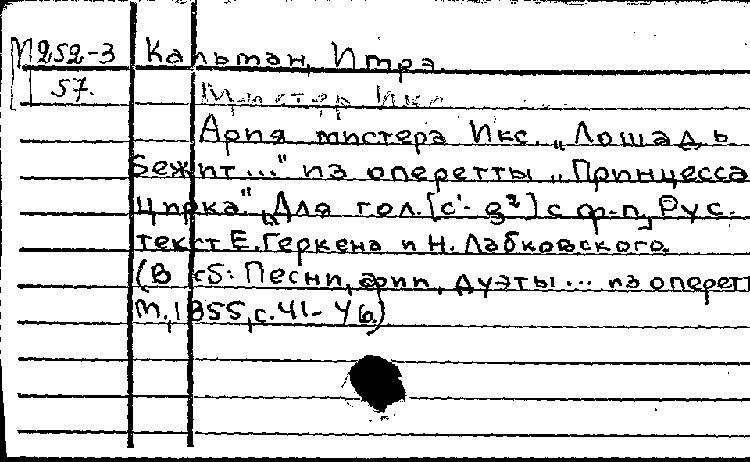 М252-3 Кальман, Имре.
57. Мистер Икс
Ария мистера Икс. „Лошадь
бежит..." из оперетты „Принцесса
цирка". Для гол. [c'- g²] с ф-п. Рус.
текст Е. Геркена и Н. Лабковского.
(В сб: Песни, арии, дуэты... из оперетт
М., 1955, с. 41-46)